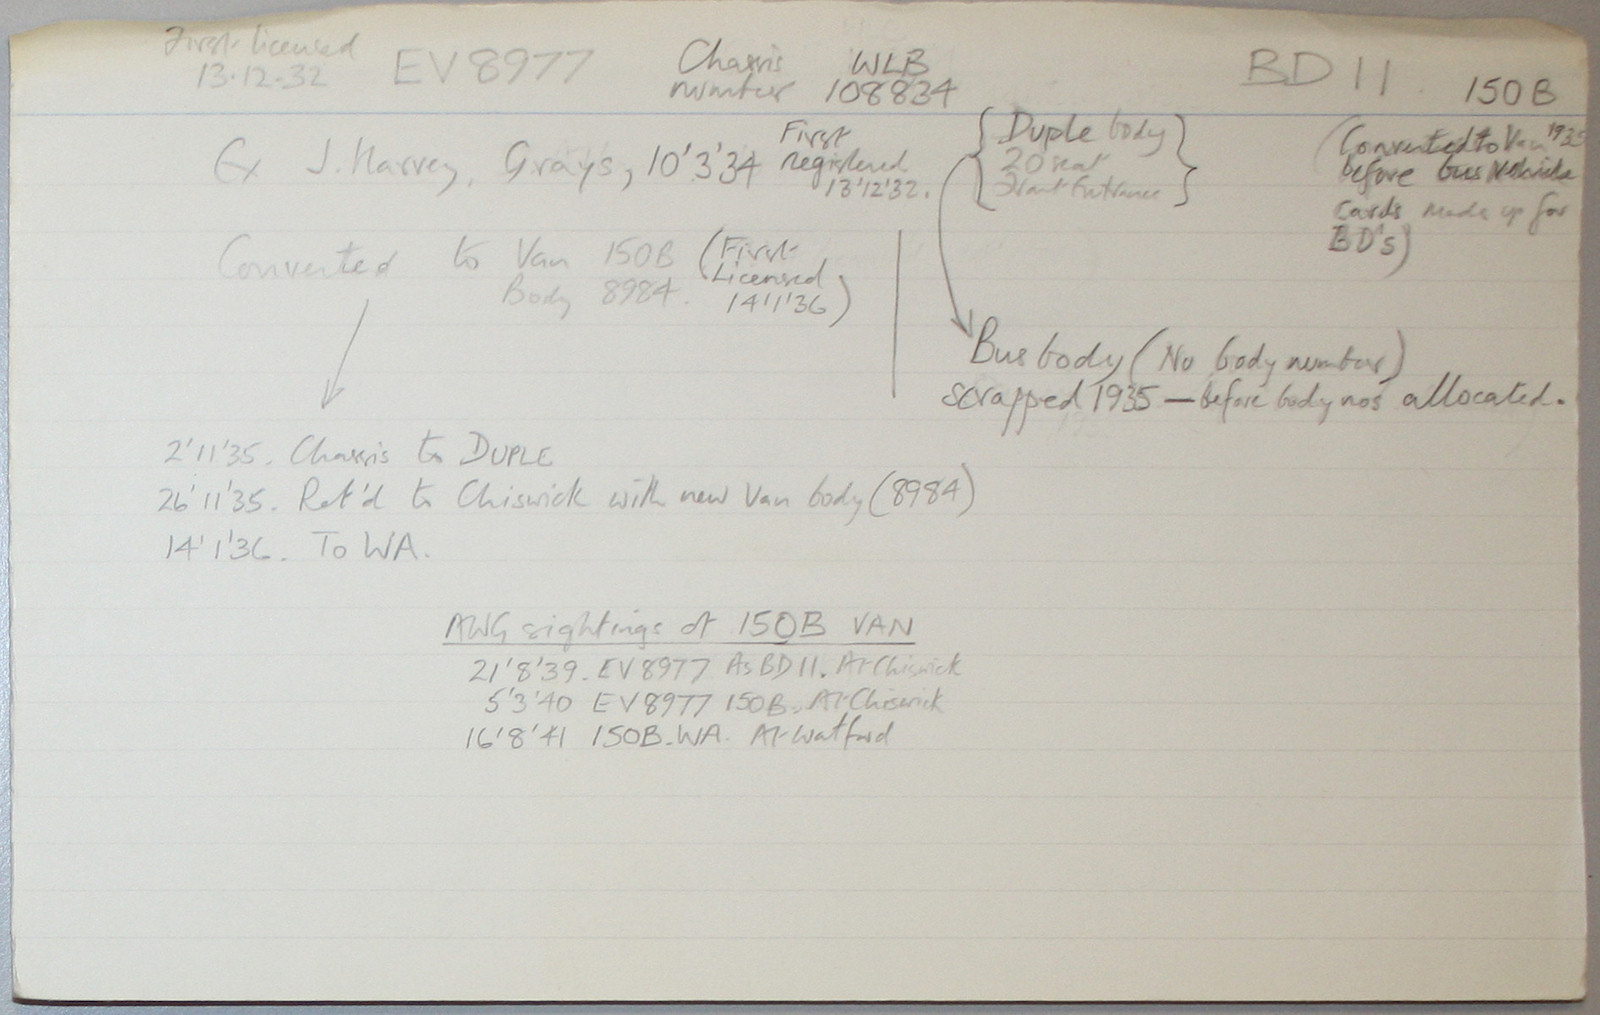 First Licensed
13.12.32
EV 8977
Chassis WLB
number 108834
BD 11
150 B
Ex J. Harvey, Grays, 10'3'34
First
registered
13'12'32.
Duple body
20 seat
Front Entrance
(Converted to Van 1935
before bus vehicle
cards made up for
BD's)
Converted to Van 150B
Body 8984.
(First
Licensed
14'1'36)
Bus body (No body number)
scrapped 1935 — before body nos allocated.
2'11'35. Chassis to DUPLE
26'11'35. Ret'd to Chiswick with new Van body (8984)
14'1'36. To WA.
AWG sightings of 150B VAN
21'8'39. EV 8977 As BD 11. At Chiswick
5'3'40 EV 8977 150B. At Chiswick
16'8'41 150B. WA. At Watford